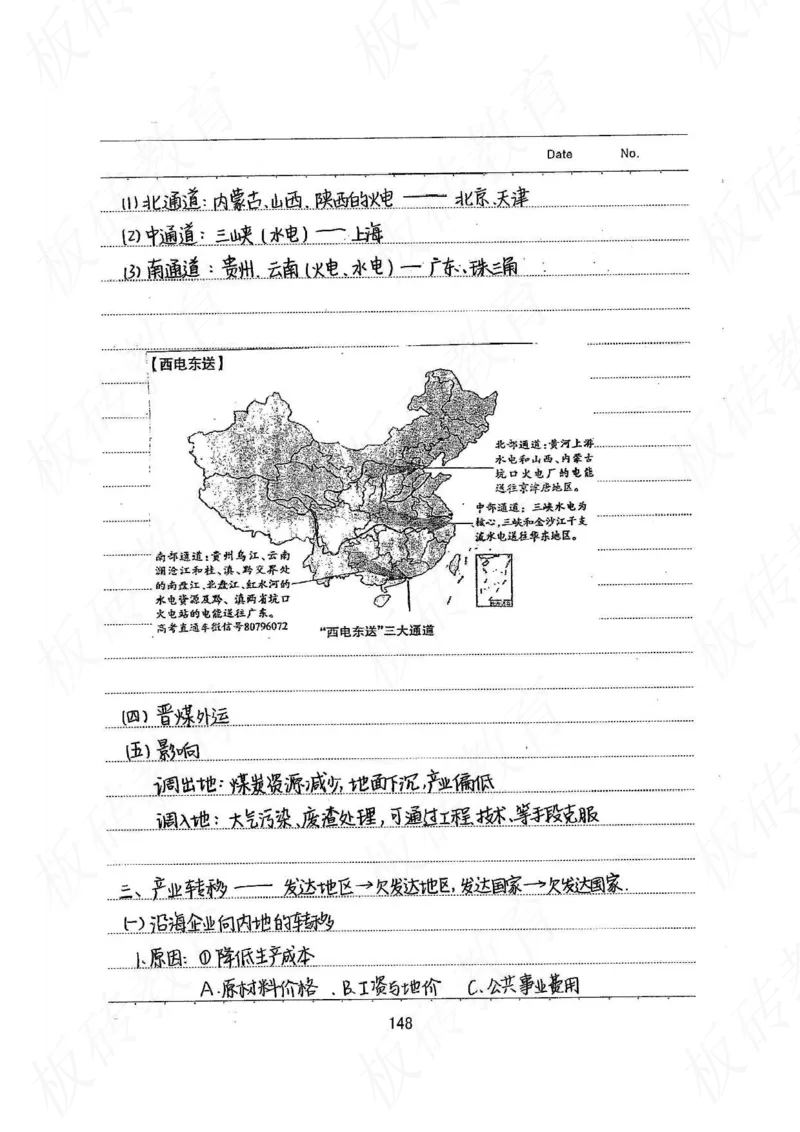 Date No.
(1)北通道：内蒙古、山西、陕西的火电 —— 北京、天津
(2)中通道：三峡(水电) —— 上海
(3)南通道：贵州、云南(火电、水电) — 广东、珠三角
【西电东送】
北部通道：黄河上游
水电和山西、内蒙古
坑口火电厂的电能
送往京津唐地区。
中部通道：三峡水电为
核心，三峡和金沙江干支
流水电送往华东地区。
南部通道：贵州乌江、云南
澜沧江和桂、滇、黔交界处
的南盘江、北盘江、红水河的
水电资源及黔、滇两省坑口
火电站的电能送往广东。
高考直通车微信号80796072
"西电东送"三大通道
(四)晋煤外运
(五)影响
调出地：煤炭资源减少，地面下沉，产业偏低
调入地：大气污染、废渣处理，可通过工程、技术、等手段克服
三、产业转移 —— 发达地区→欠发达地区，发达国家→欠发达国家.
(一)沿海企业向内地的转移
1.原因：①降低生产成本
A.原材料价格 、B.工资与地价 C.公共事业费用
148
板砖教育